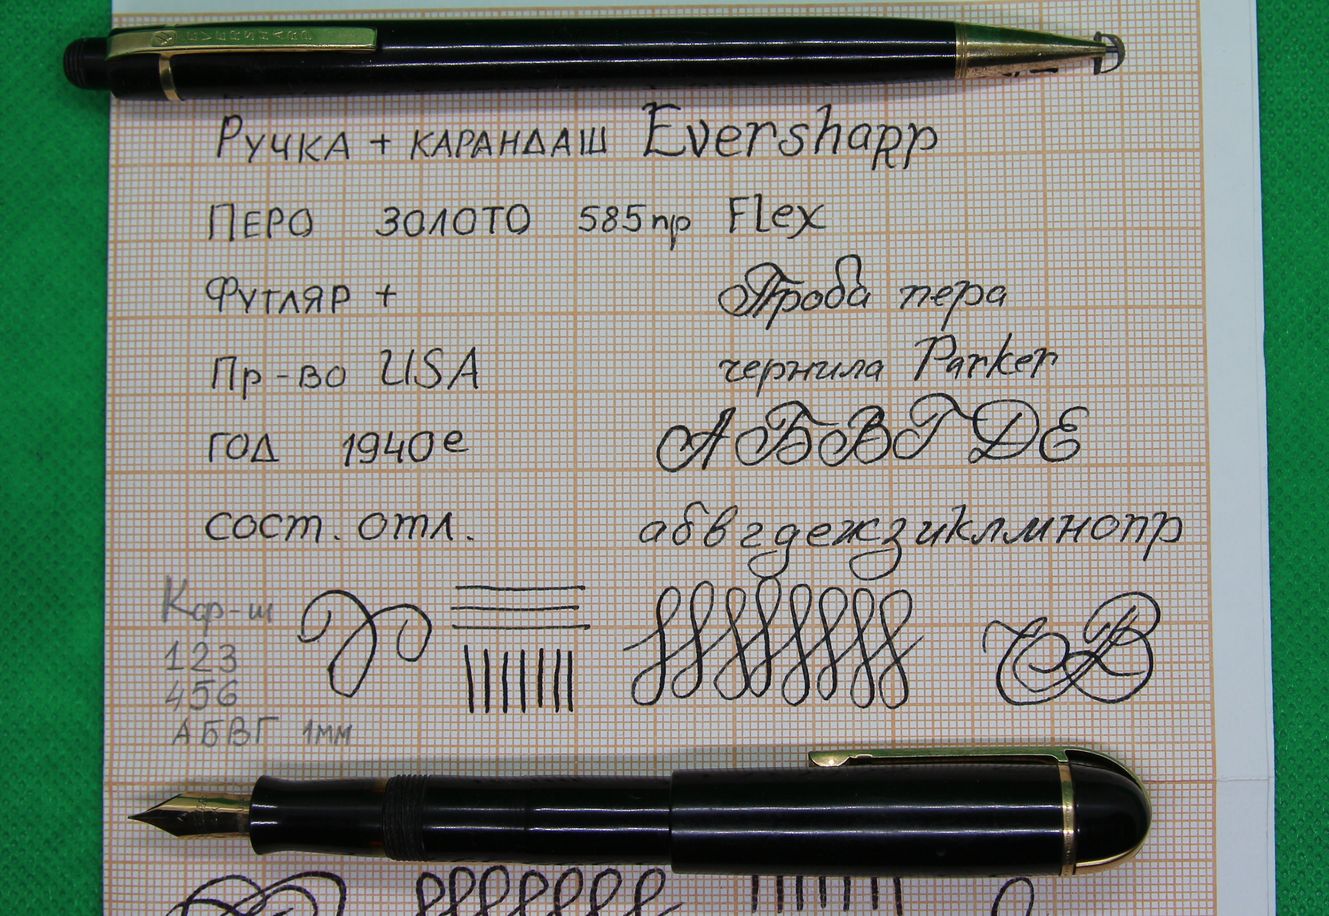 EVERSHARP
Ручка + карандаш Eversharp
Перо золото 585 пр Flex
Футляр +
Проба пера
Пр-во USA
чернила Parker
год 1940е
А Б В Г Д Е
сост. отл.
абвгдежзиклмнопр
Кар-ш
123
456
АБВГ 1мм